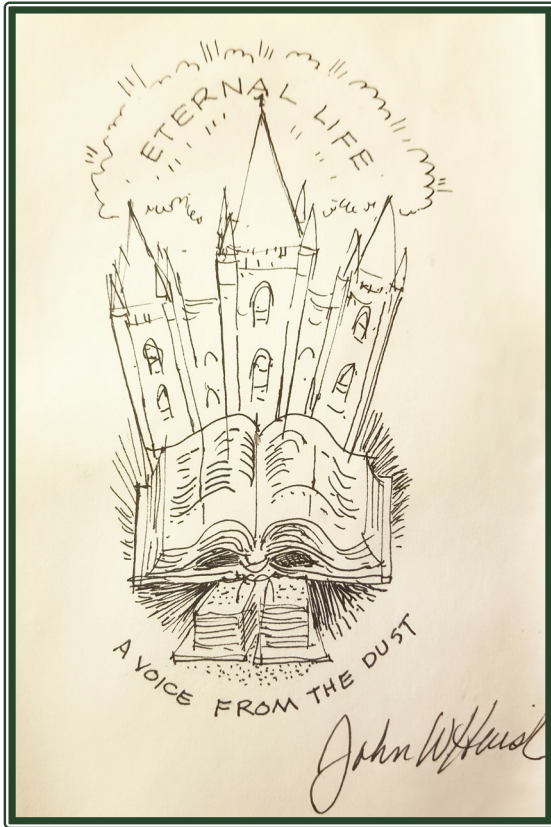 ETERNAL LIFE
A VOICE FROM THE DUST
John W